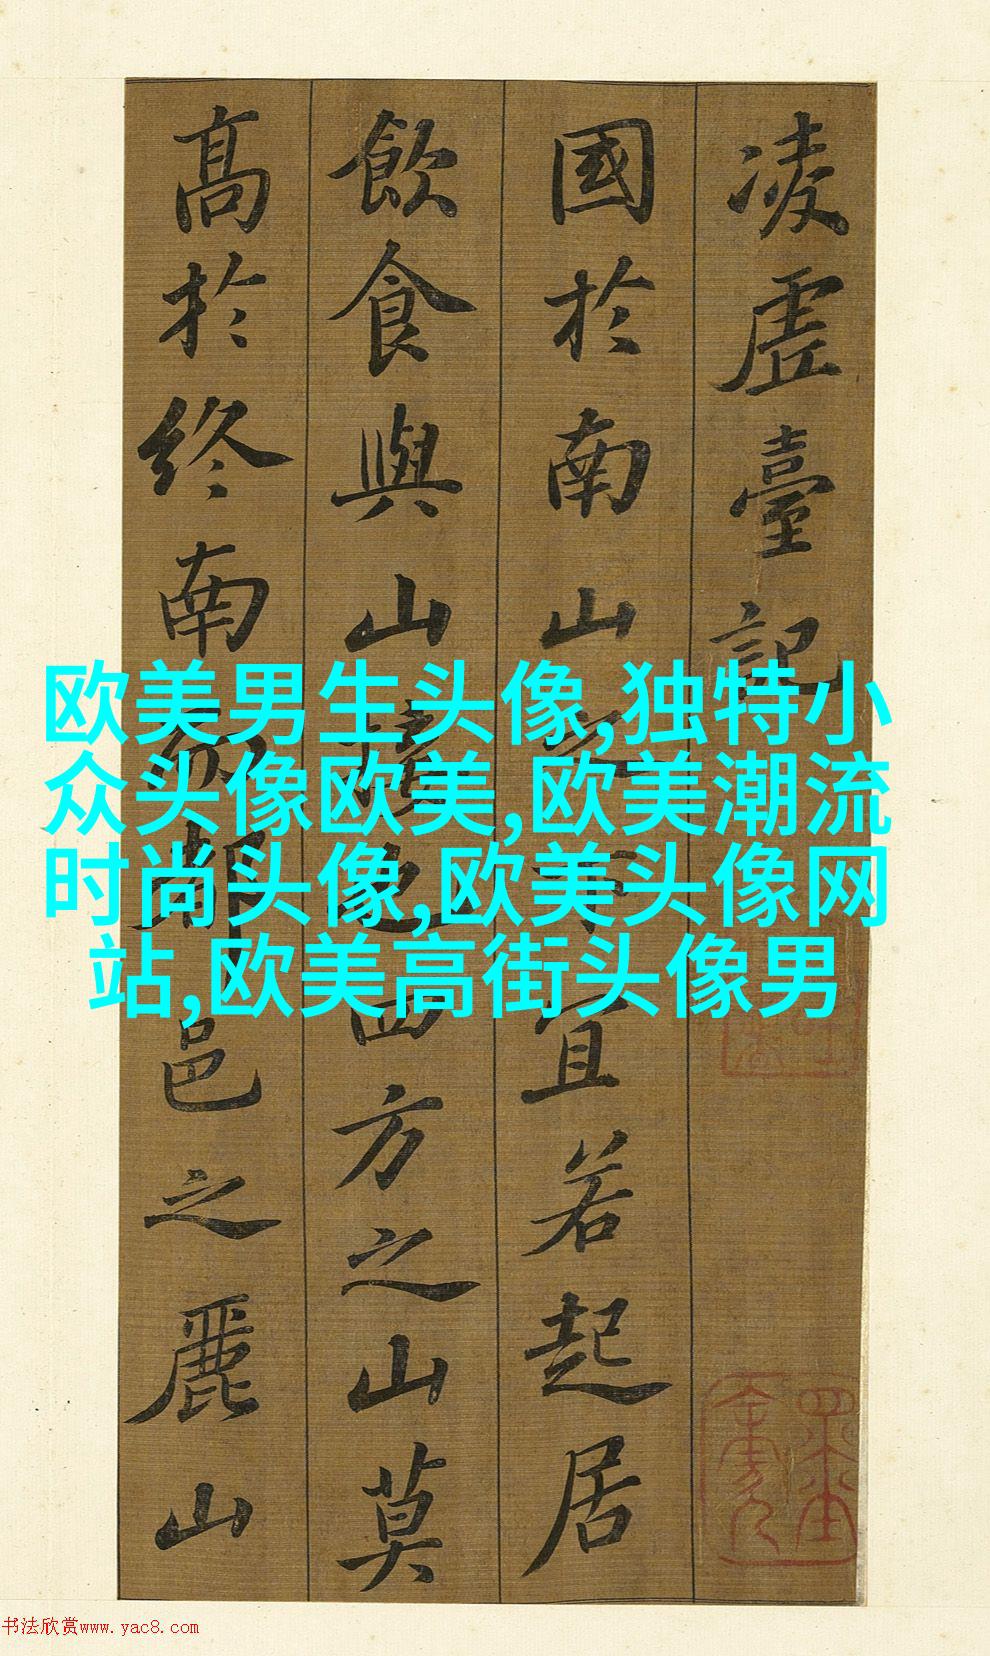 凌虛臺記
國於南山之下宜若起居
飲食與山接也四方之山莫
高於終南而都邑之麗山
欧美男生头像,独特小
众头像欧美,欧美潮流
时尚头像,欧美头像网
站,欧美高街头像男
书法欣赏www.yac8.com